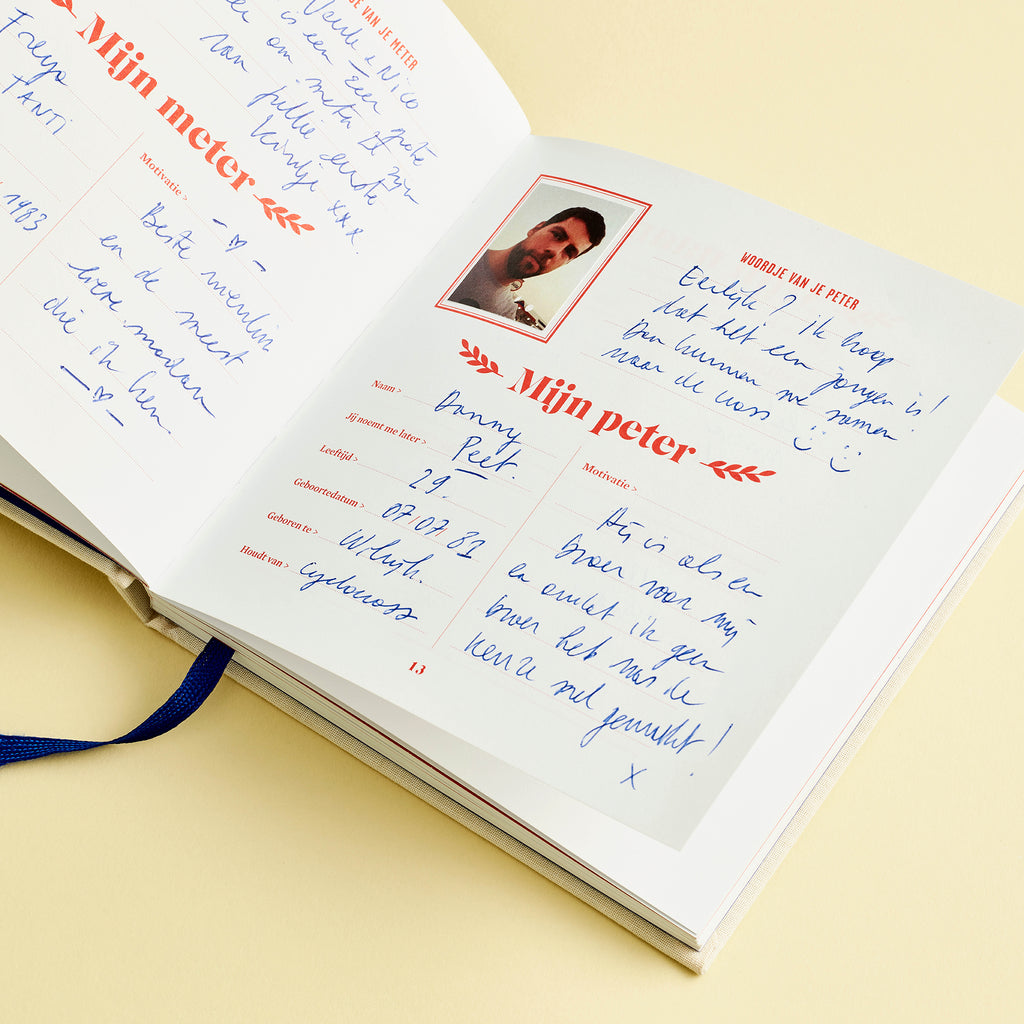 JE VAN JE METER
Veerle & Nico
is een Eer
om meter te zijn
van jullie eerste
kindje xxx.
Mijn meter
Freya
TANTI
1983
Motivatie >
Beste vriendin
en de meest
lieve madam
die ik ken.
WOORDJE VAN JE PETER
Eerlijk? ik hoop
dat het een jongen is!
Dan kunnen we samen
naar de cross
Mijn peter
Naam > Danny
Jij noemt me later > Peet.
Leeftijd > 29.
Geboortedatum > 07/07/81
Geboren te > Wilrijk.
Houdt van > cyclocross
Motivatie >
Hij is als een
broer voor mij
en omdat ik geen
broer heb was de
keuze snel gemaakt!
x
13